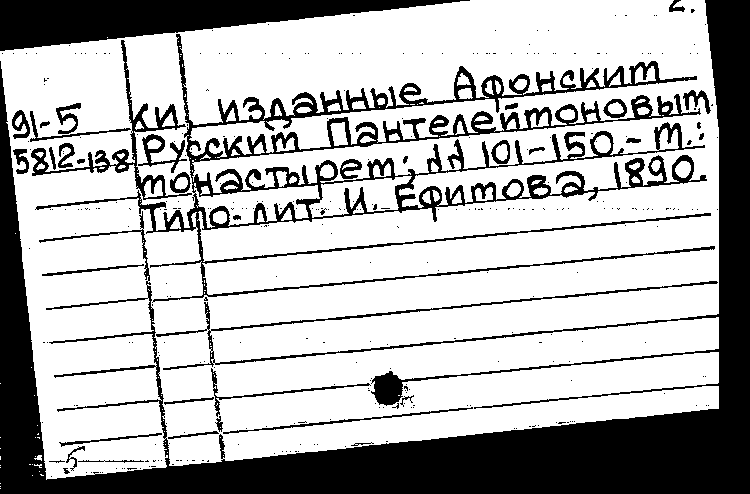 2.
91-5 ки, изданные Афонским
5812-138 Русским Пантелеймоновым
монастырем; №№ 101-150.- М.:
Типо-лит. И. Ефимова, 1890.
5